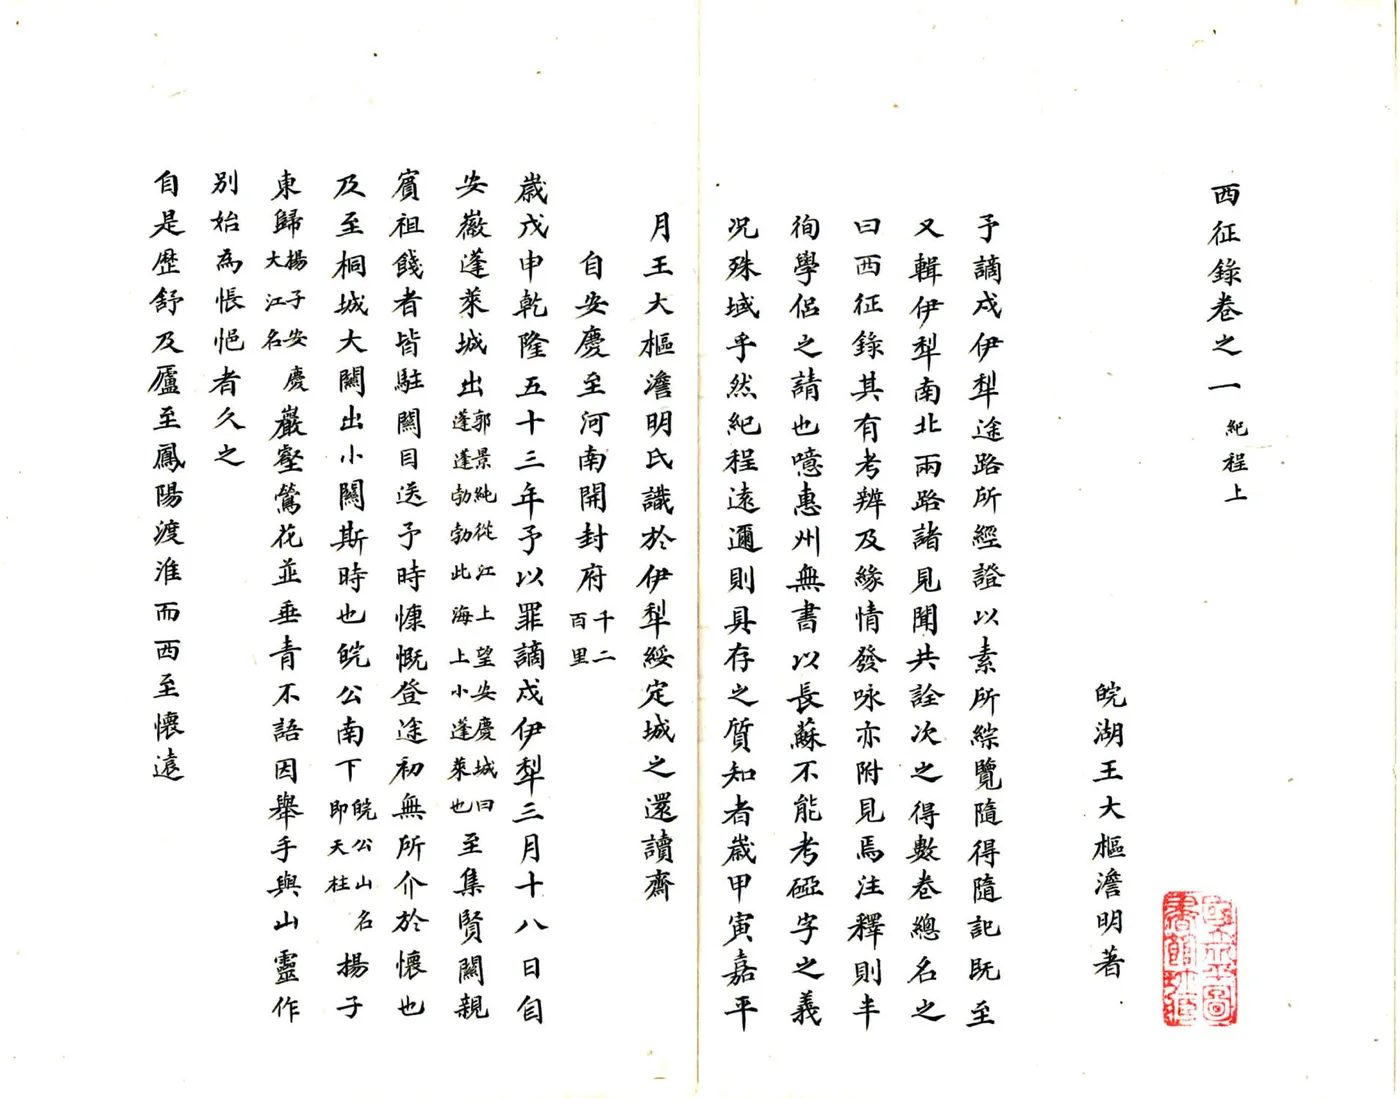 西征錄卷之一 紀程上
皖湖王大樞澹明著
予謫戍伊犁途路所經證以素所綜覽隨得隨記既至
又輯伊犁南北兩路諸見聞共詮次之得數卷總名之
曰西征錄其有考辨及緣情發咏亦附見焉注釋則半
徇學侶之請也噫惠州無書以長蘇不能考砸字之義
况殊域乎然紀程遠邇則具存之質知者歲甲寅嘉平
月王大樞澹明氏識於伊犁綏定城之還讀齋
自安慶至河南開封府千二百里
歲戊申乾隆五十三年予以罪謫戍伊犁三月十八日自
安薇蓬萊城出郭景純從江上望安慶城曰蓬蓬勃勃此海上小蓬萊也至集賢關親
賓祖餞者皆駐關目送予時慷慨登途初無所介於懷也
及至桐城大關出小關斯時也皖公南下皖公山名即天柱揚子
東歸揚子安慶大江名巖壑鶯花並垂青不語因舉手與山靈作
別始為悵悒者久之
自是歷舒及廬至鳳陽渡淮而西至懷遠